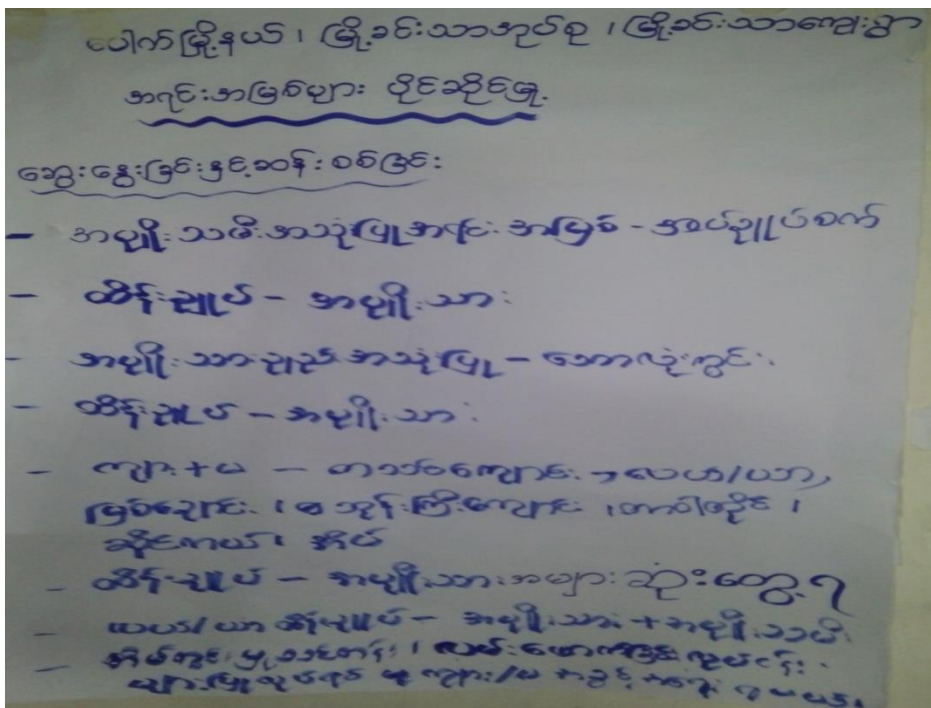 ပေါက်မြို့နယ်၊ မြို့ခင်းသာအုပ်စု၊ မြို့ခင်းသာကျေးရွာ
အရင်းအမြစ်များ ပိုင်ဆိုင်မှု
ဆွေးနွေးခြင်းနှင့်ဆန်းစစ်ခြင်း
- အမျိုးသမီးအသုံးပြုအရင်းအမြစ် - အပ်ချုပ်စက်
- ထိန်းချုပ် - အမျိုးသား
- အမျိုးသားများအသုံးပြု - ဘောလုံးကွင်း
- ထိန်းချုပ် - အမျိုးသား
- ကျား+မ - စာသင်ကျောင်း, လယ်/ယာ,
မြစ်ချောင်း၊ ဘုန်းကြီးကျောင်း၊
ဆိုင်ကယ်၊ အိမ်
- ထိန်းချုပ် - အမျိုးသားအများဆုံးတွေ့ရ
- လယ်/ယာ ထိန်းချုပ် - အမျိုးသား+အမျိုးသမီး